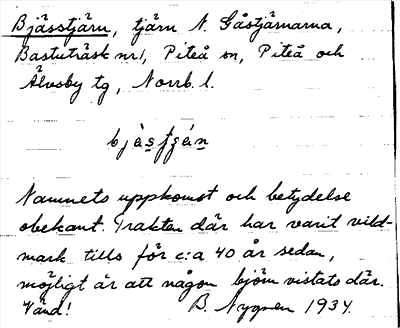 Bjässtjärn, tjärn N. Gåstjärnarna,
Bastuträsk nr 1, Piteå sn, Piteå och
Älvsby tg, Norrb. l.
bjàsṣtjä́ṇ
Namnets uppkomst och betydelse
obekant. Trakten där har varit vild-
mark tills för c:a 40 år sedan,
möjligt är att någon björn vistats där.
Vänd! B. Nygren 1934.